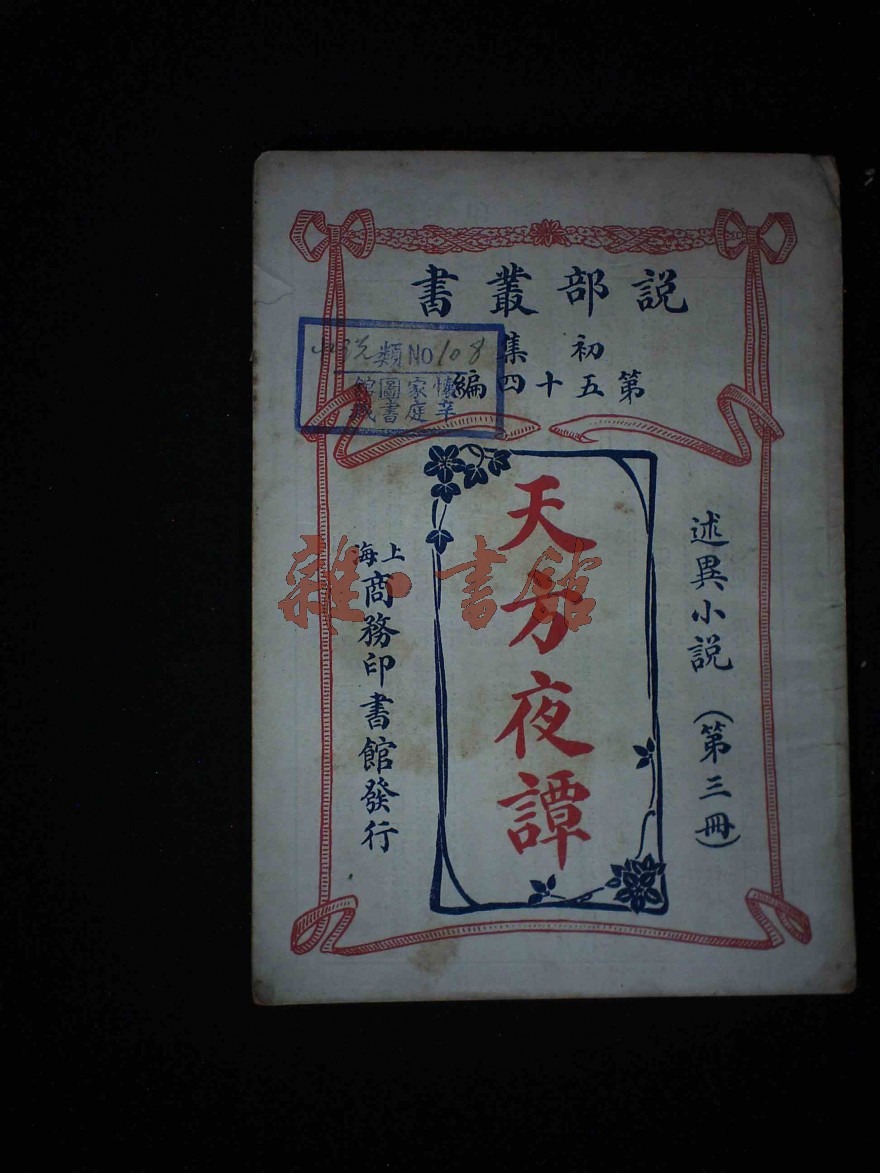 說部叢書
初集
第五十四編
小說類NO108
懷辛家庭圖書館藏
述異小說(第三冊)
天方夜譚
上海商務印書館發行
雜·書館